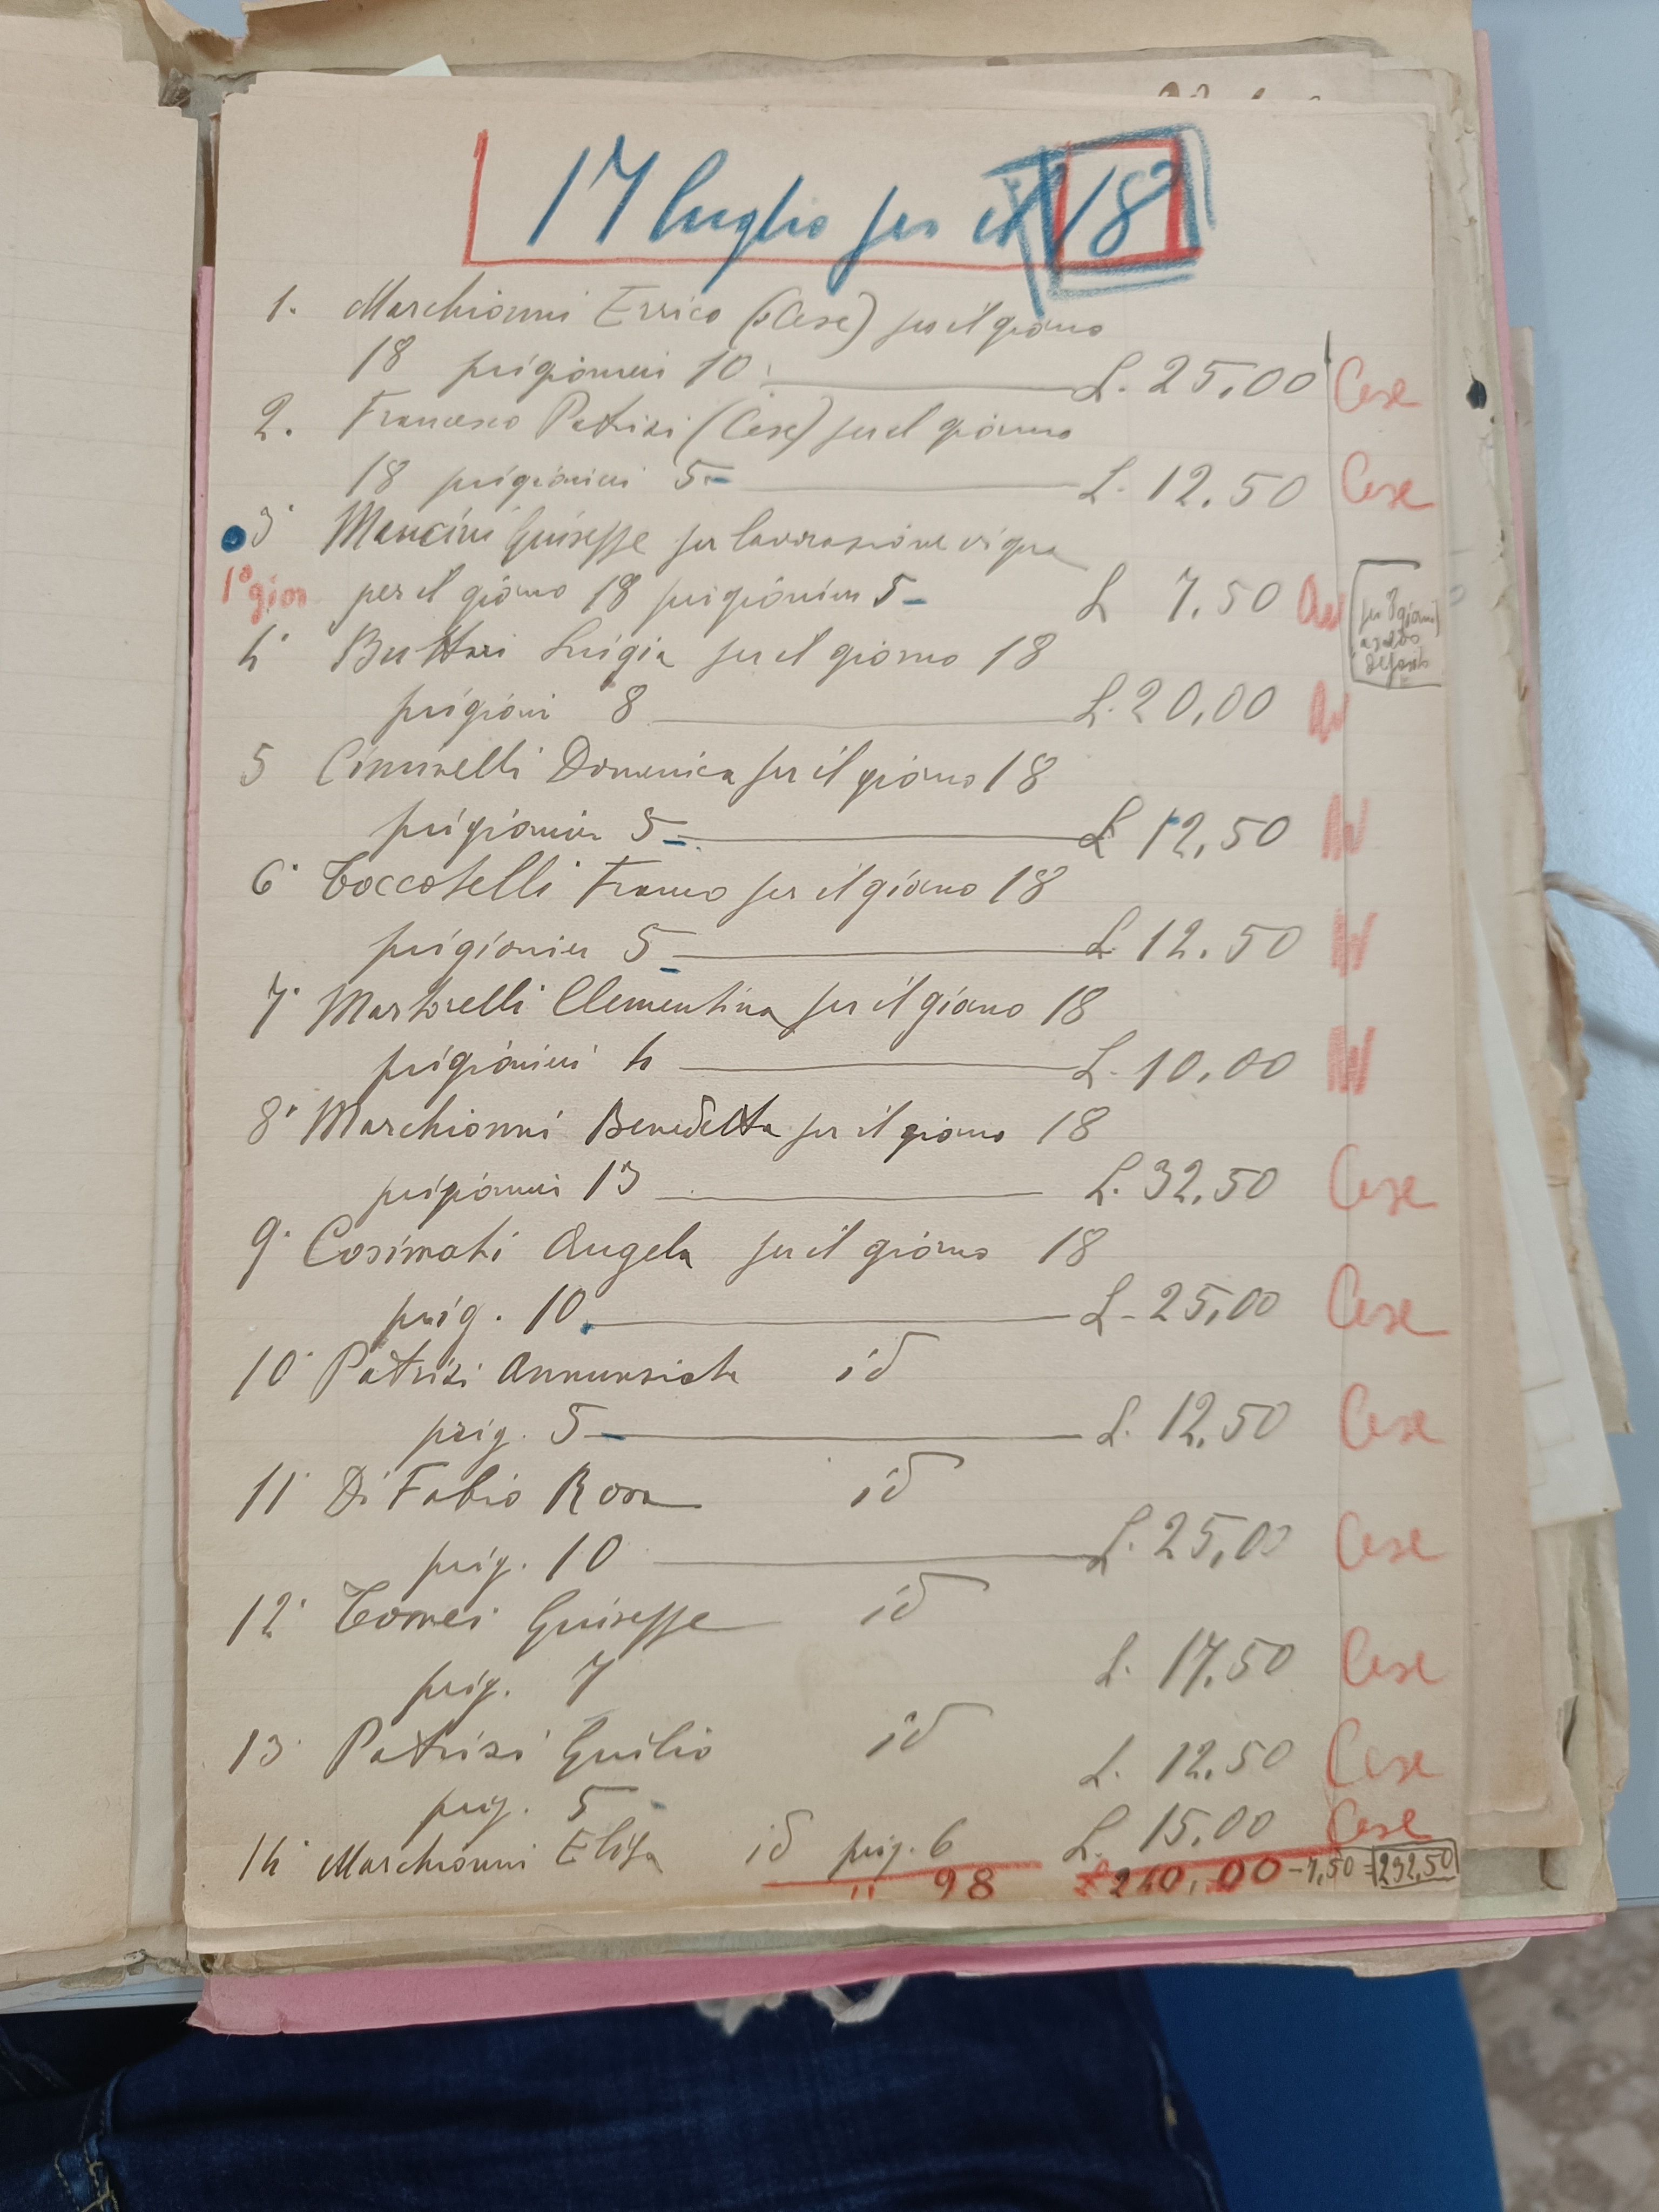 17 luglio per il 18
1. Marchionni Errico (Cese) per il giorno
18 prigionieri 10 L. 25,00 Cese
2. Francesco Patrizi (Cese) per il giorno
18 prigionieri 5 L. 12.50 Cese
3° Mancini Giuseppe per lavorazione vigna
1° gior per il giorno 18 prigionieri 5 L 7.50 Av
4° Buttari Luigia per il giorno 18
prigioni 8 L. 20,00 Av
5 Ciminelli Domenica per il giorno 18
prigionieri 5 L 12,50 Av
6° Toccotelli Franco per il giorno 18
prigionieri 5 L 12.50 Av
7° Martorelli Clementina per il giorno 18
prigionieri 4 L. 10,00 Av
8° Marchionni Benedetta per il giorno 18
prigionieri 13 L. 32,50 Cese
9° Cosimati Angela per il giorno 18
prig. 10 L. 25,00 Cese
10° Patrizi Annunziata id
prig. 5 L. 12,50 Cese
11° Di Fabio Rosa id
prig. 10 L. 25,00 Cese
12° Tomei Giuseppe id
prig. 7 L. 17.50 Cese
13° Patrizi Guilio id
prig. 5 L. 12.50 Cese
14° Marchionni Elisa id prig. 6 L. 15,00 Cese
" 98 £ 240,00 - 7,50 = 232,50